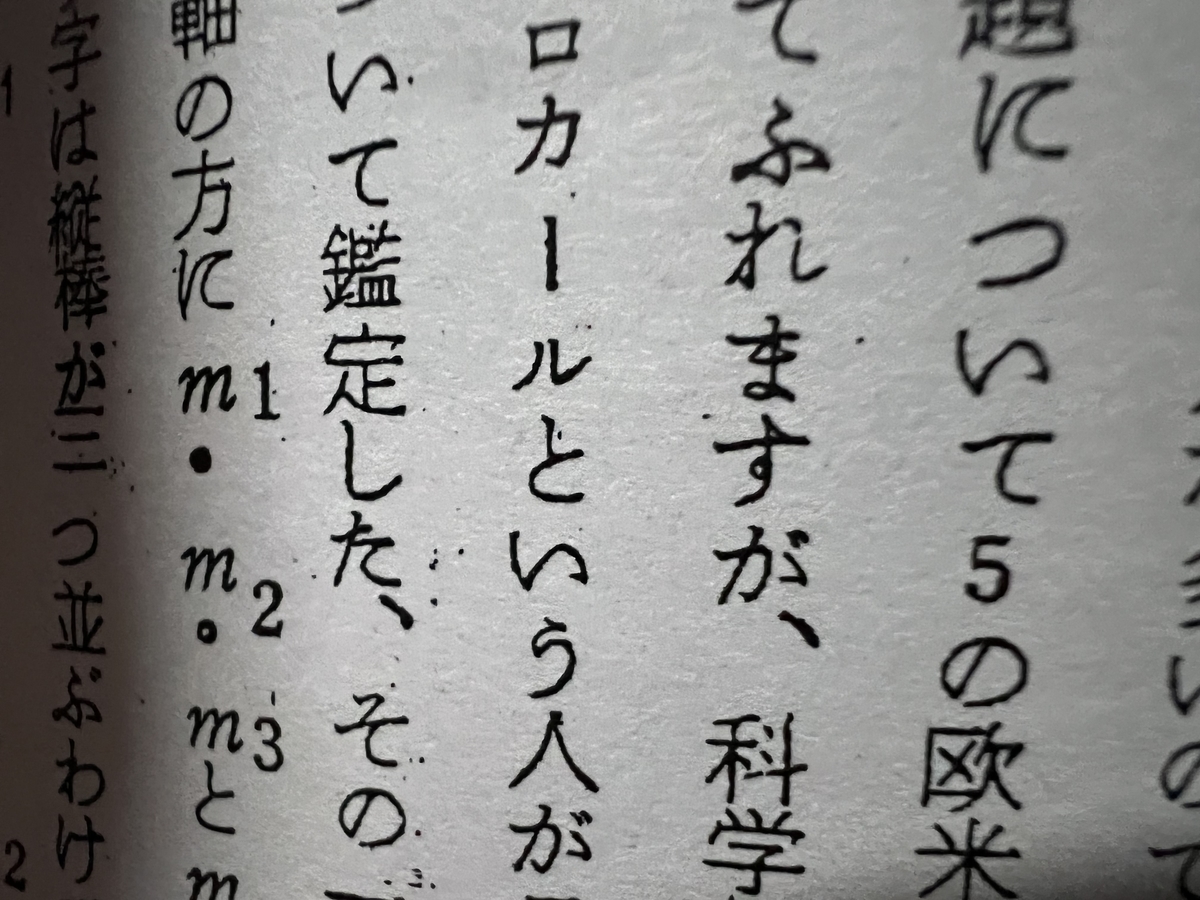 題について5の欧米
てふれますが、科学
ロカールという人が
いて鑑定した、その
軸の方にm1・m2・m3とm
字は縦棒が三つ並ぶわけ
1
2